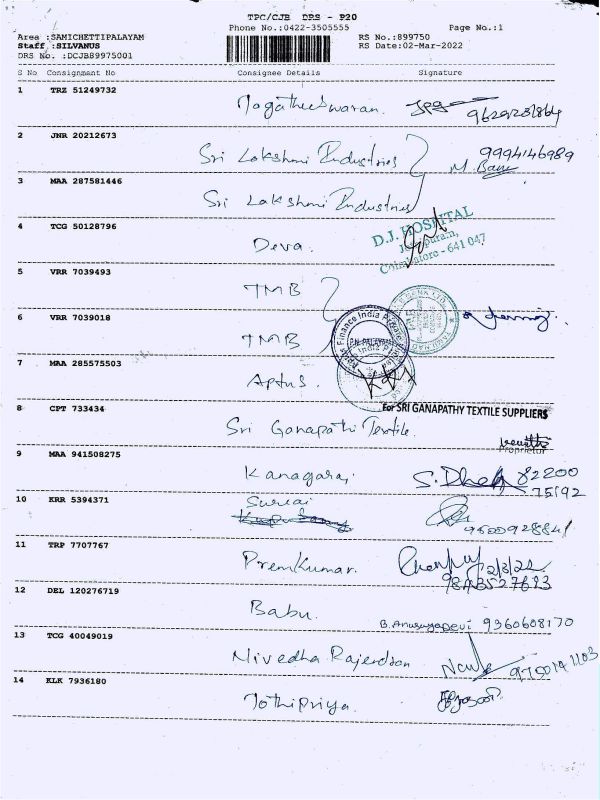 TPC/CJB DRS - P20
Phone No.:0422-3505555 Page No.:1
Area :SAMICHETTIPALAYAM RS No.:899750
Staff :SILVANUS RS Date:02-Mar-2022
DRS No. :DCJB89975001
S No Consignment No Consignee Details Signature
1 TRZ 51249732
Jagatheeswaran.
2 JNR 20212673
Sri Lakshmi Industries 9994146989
3 MAA 287581446
Sri Lakshmi Industries
4 TCG 50128796
Deva. D.J. HOSPITAL
Coimbatore - 641 047
5 VRR 7039493
TMB
6 VRR 7039018
TMB
Aptus Finance India Private Limited
P.N. PALAYAM
7 MAA 285575503
Aptus.
8 CPT 733434 For SRI GANAPATHY TEXTILE SUPPLIERS
Sri Ganapathi Textile.
Proprietor
9 MAA 941508275
Kanagaraj 82200
75192
10 KRR 5394371
11 TRP 7707767
PremKumar. 2/3/22
12 DEL 120276719
Babu. B.Anusuyadevi 9360608170
13 TCG 40049019
Nivedha Rajendran
14 KLK 7936180
Jothipriya.